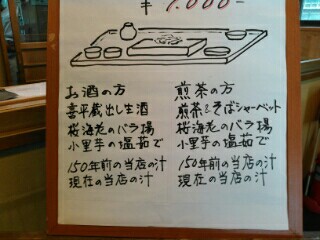 ¥ 1.000-
お酒の方
喜平蔵出し生酒
桜海老のバラ揚
小里芋の塩茹で
150年前の当店の汁
現在の当店の汁
煎茶の方
煎茶とそばシャーベット
桜海老のバラ揚
小里芋の塩茹で
150年前の当店の汁
現在の当店の汁